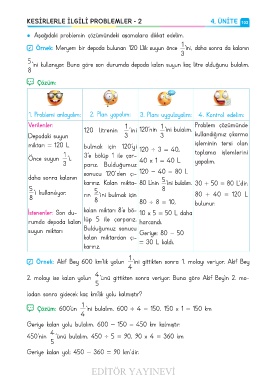 KESİRLERLE İLGİLİ PROBLEMLER - 2
4. ÜNİTE
Aşağıdaki problemin çözümündeki aşamalara dikkat edelim.
Örnek: Meryem bir depoda bulunan 120 L'lik suyun önce 1/3'ini, daha sonra da kalanın
5/8'ini kullanıyor. Buna göre son durumda depoda kalan suyun kaç litre olduğunu bulalım.
Çözüm:
1. Problemi anlayalım:
Verilenler:
Depodaki suyun
miktarı = 120 L
Önce suyun 1/3'i,
daha sonra kalanın
5/8'i kullanılıyor.
İstenenler: Son du-
rumda depoda kalan
suyun miktarı
2. Plan yapalım:
120 litrenin 1/3'ini
bulmak için 120'yi
3'e bölüp 1 ile çar-
parız. Bulduğumuz
sonucu 120'den çı-
karırız. Kalan mikta-
rın 5/8'ini bulmak için
kalan miktarı 8'e bö-
lüp 5 ile çarparız.
Bulduğumuz sonucu
kalan miktardan çı-
karırız.
3. Planı uygulayalım:
120'nin 1/3'ini bulalım.
120 ÷ 3 = 40,
40 x 1 = 40 L
120 - 40 = 80 L
80 L'nin 5/8'ini bulalım.
80 ÷ 8 = 10,
10 x 5 = 50 L daha
harcandı.
Geriye: 80 - 50
= 30 L kaldı.
4. Kontrol edelim:
Problem çözümünde
kullandığımız çıkarma
işleminin tersi olan
toplama işlemlerini
yapalım.
30 + 50 = 80 L'dir.
80 + 40 = 120 L
bulunur.
Örnek: Akif Bey 600 km'lik yolun 1/4'ini gittikten sonra 1. molayı veriyor. Akif Bey
2. molayı ise kalan yolun 4/5'ünü gittikten sonra veriyor. Buna göre Akif Bey'in 2. mo-
ladan sonra gidecek kaç km'lik yolu kalmıştır?
Çözüm: 600'ün 1/4'ini bulalım. 600 ÷ 4 = 150, 150 x 1 = 150 km
Geriye kalan yolu bulalım. 600 - 150 = 450 km kalmıştır.
450'nin 4/5'ünü bulalım. 450 ÷ 5 = 90, 90 x 4 = 360 km
Geriye kalan yol: 450 - 360 = 90 km'dir.
EDİTÖR YAYINEVİ